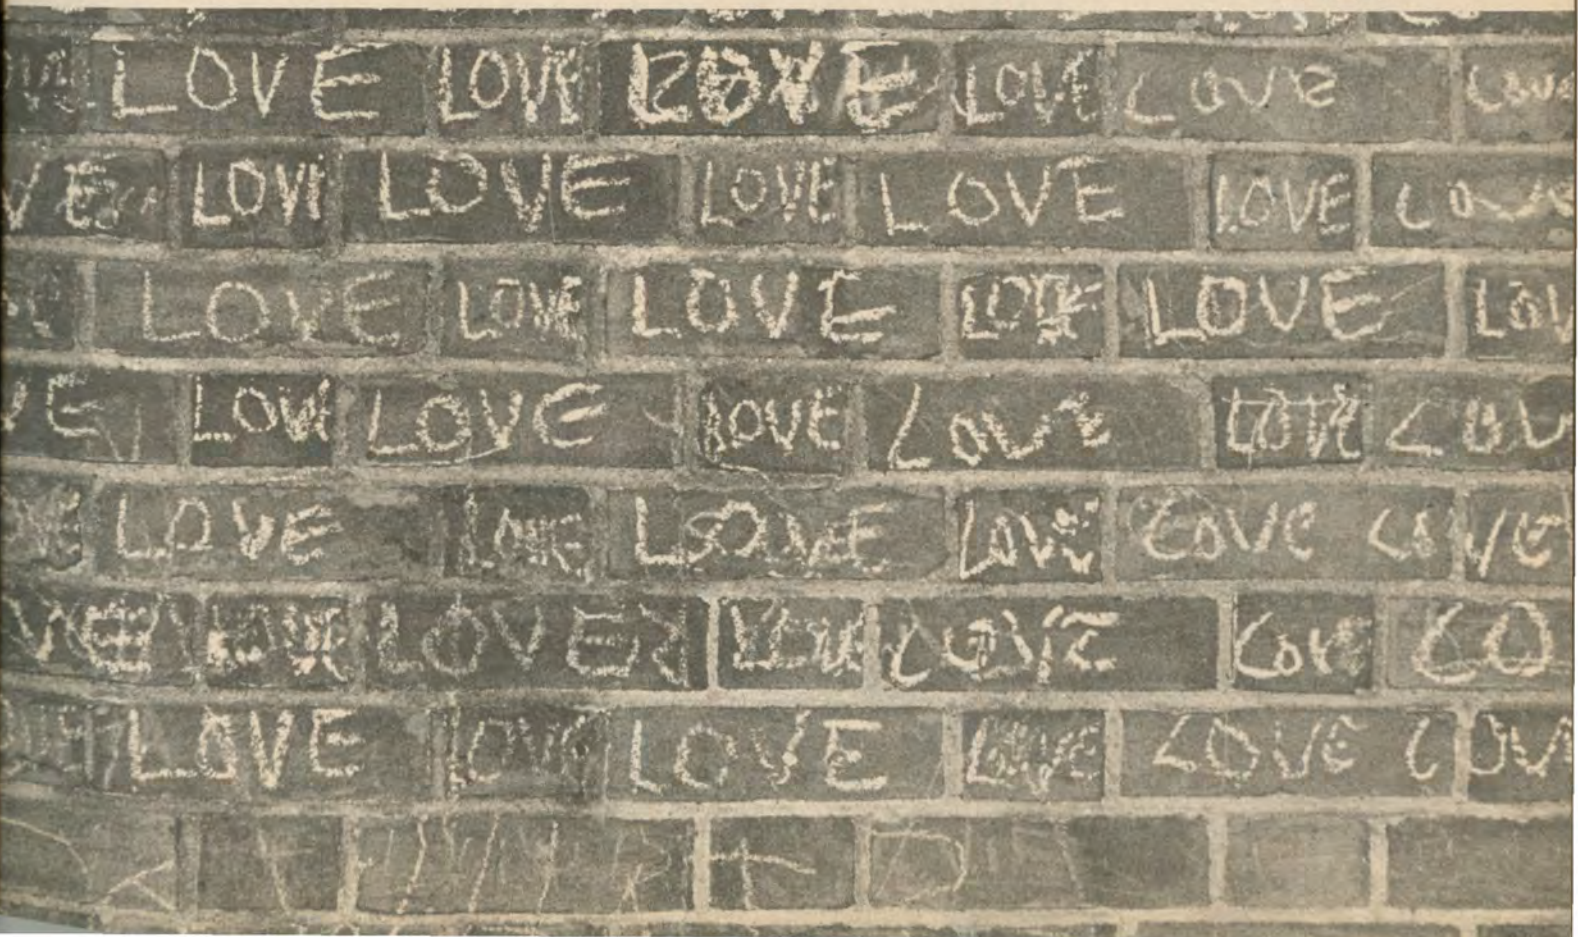 LOVE LOVE LOVE LOVE Love Love
VE LOVE LOVE LOVE LOVE LOVE Love
LOVE LOVE LOVE LOVE LOVE LOV
VE LOVE LOVE LOVE Love LOVE LOV
LOVE LOVE LOVE LOVE LOVE LOVE
VE LOVE LOVE LOVE LOVE Love LO
LOVE LOVE LOVE LOVE LOVE LOV